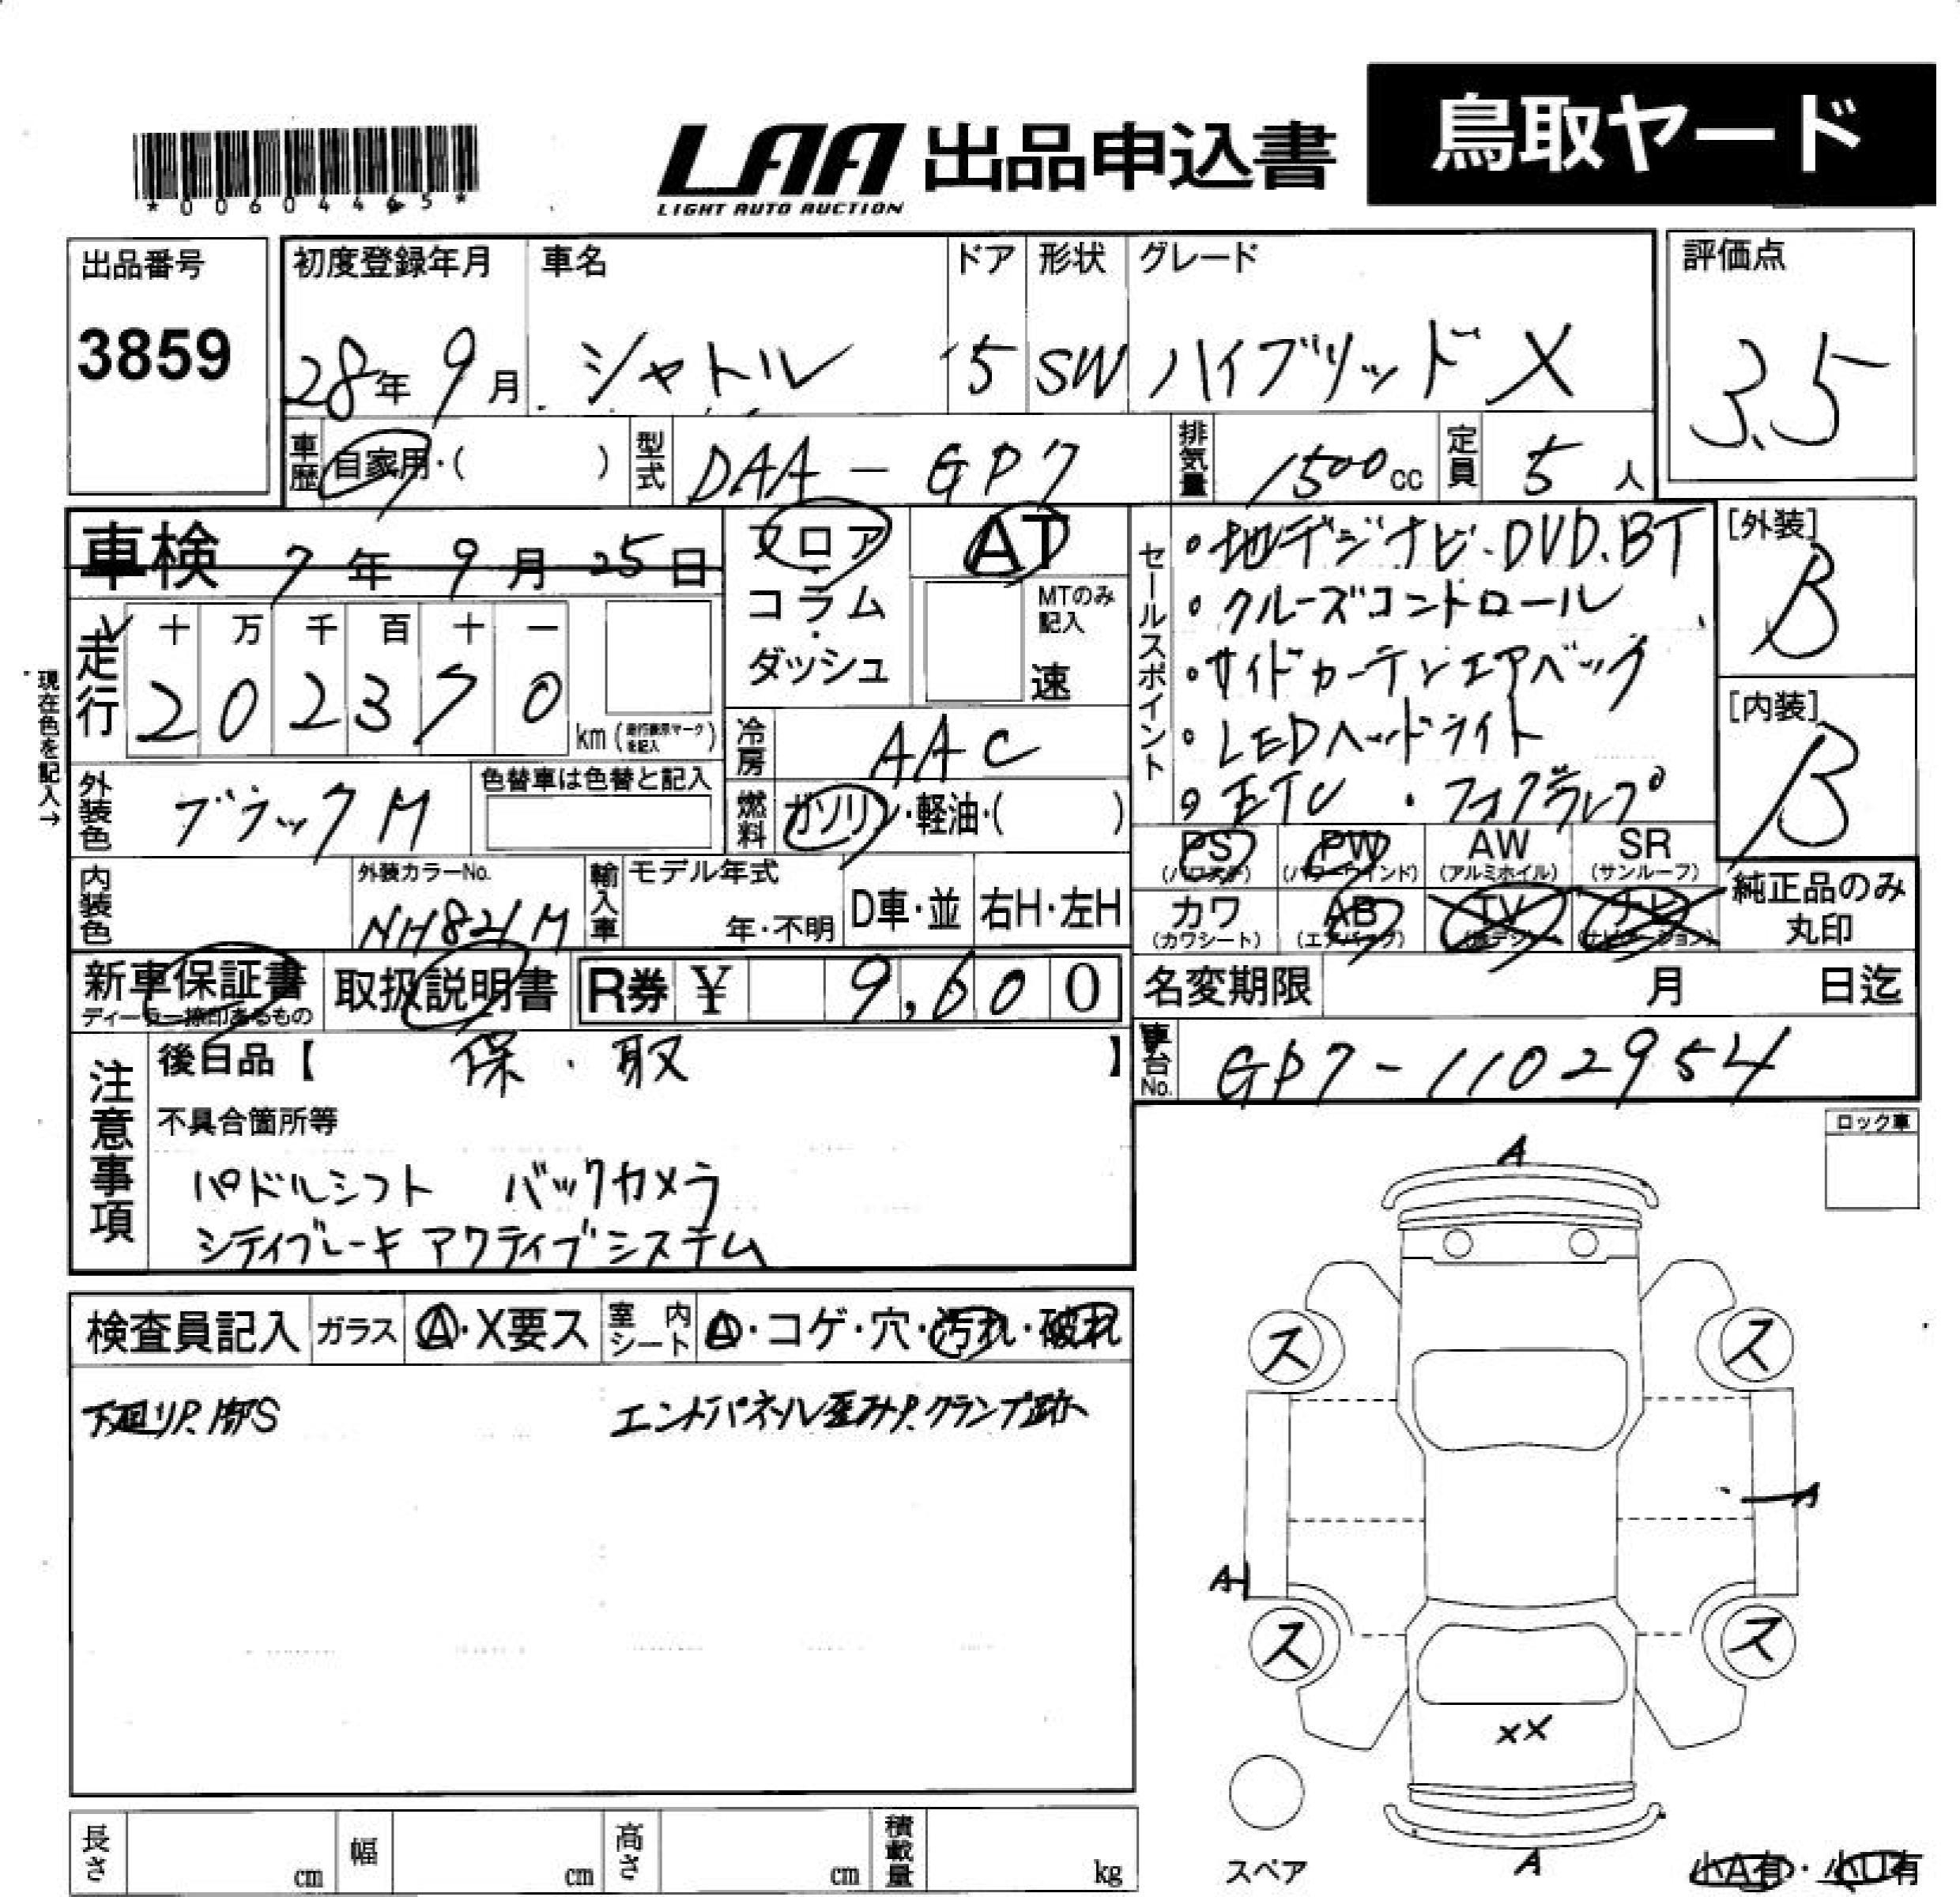 鳥取ヤード
LAA 出品申込書
LIGHT AUTO AUCTION
*00604465*
出品番号 初度登録年月 車名 ドア 形状 グレード 評価点
3859 28年9月 シャトル 5 SW ハイブリッド X 3.5
車歴 自家用・( ) 型式 DAA-GP7 排気量 1500cc 定員 5人
車検 7年9月25日
フロア・コラム・ダッシュ
AT
MTのみ記入
速
セールスポイント
・地デジナビ.DVD.BT
・クルーズコントロール
・サイドカーテンエアバッグ
・LEDヘッドライト
・ETC ・フォグランプ
[外装]
B
[内装]
B
現在色を記入→
走行 十 万 千 百 十 一
202370 km(走行表示マークを記入)
冷房 AAC
外装色 ブラックM 色替車は色替と記入
燃料 ガソリン・軽油・( )
PS AW SR
(パワステ) (パワーウインド) (アルミホイル) (サンルーフ)
PW
カワ AB TV ナビ
(カワシート) (エアバック) (地デジ) (ナビゲーション)
純正品のみ丸印
内装色 外装カラーNo. NH821M 輸入車 モデル年式 年・不明 D車・並 右H・左H
新車保証書 取扱説明書 R券 ¥ 9,600
ディーラー捺印あるもの
名変期限 月 日迄
車台No. GP7-1102954
注意事項
後日品【 保・取 】
不具合箇所等
パドルシフト バックカメラ
シティブレーキアクティブシステム
ロック車
検査員記入 ガラス A・X要ス 室内シート A・コゲ・穴・汚れ・破れ
下廻りP.脚S エンドパネル歪みP.クランプ跡
A
ス ス
A
A
ス ス
XX
A
スペア
小A有・小U有
長さ cm 幅 cm 高さ cm 積載量 kg